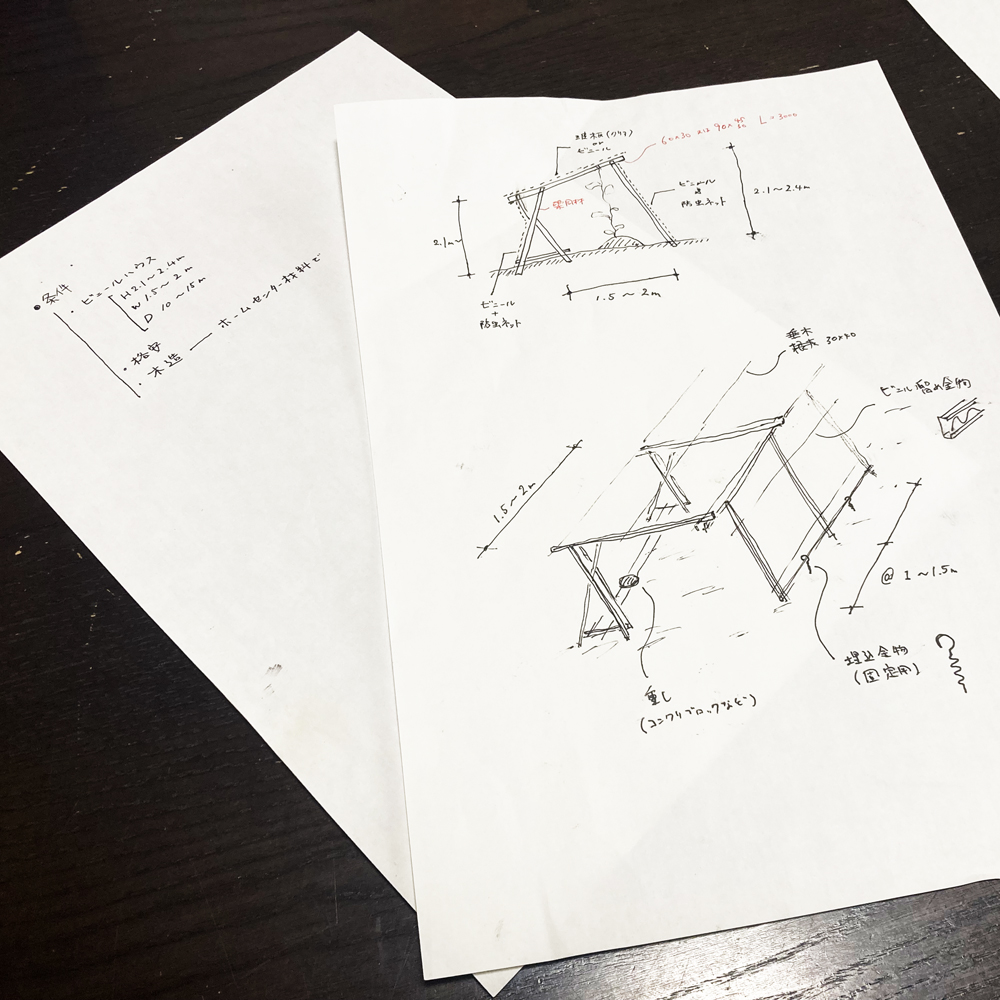 ●条件
・ビニールハウス
H 2.1～2.4m
W 1.5～2m
D 10～15m
・格安
・木造 ― ホームセンター材料で
波板(クリア)
or
ビニール
60×30 又は 90×45 L=3000
2.1m～
ビニール
防虫ネット
2.1～2.4m
1.5～2m
ビニール
+
防虫ネット
垂木
30×40
ビニル留め金物
1.5～2m
@ 1～1.5m
埋込金物
(固定用)
重し
(コンクリブロックなど)